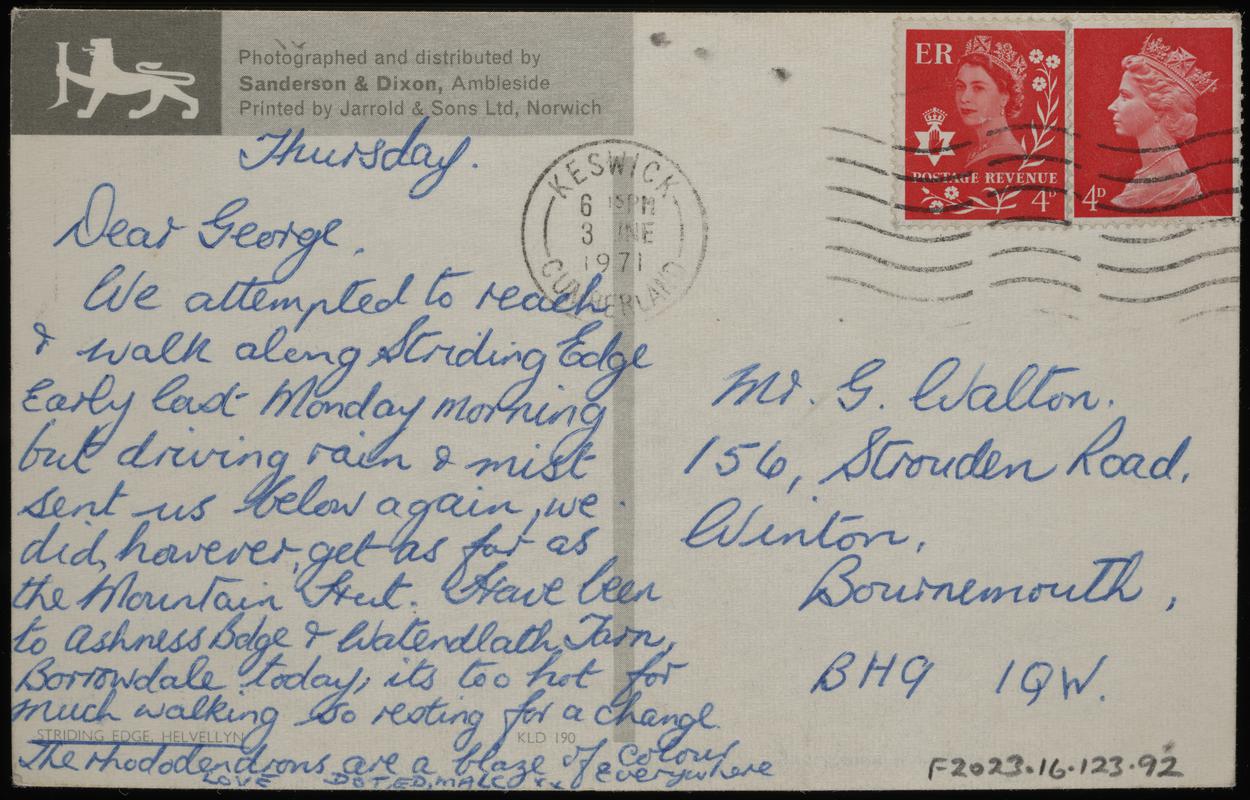 Photographed and distributed by
Sanderson & Dixon, Ambleside
Printed by Jarrold & Sons Ltd, Norwich
Thursday.
Dear George,
We attempted to reach
& walk along Striding Edge
Early last Monday morning
but driving rain & mist
sent us below again, we
did, however, get as far as
the Mountain Hut. Have been
to Ashness Bdge & Watendlath Tarn,
Borrowdale today; its too hot for
much walking so resting for a change.
STRIDING EDGE, HELVELLYN
KLD 190
The rhododendrons are a blaze of colour
everywhere
LOVE DOT, ED, MALC xx
KESWICK
6 15PM
3 UNE
1971
CUMBERLAND
ER
POSTAGE REVENUE
4D
4D
Mr. G. Walton.
156, Strouden Road,
Winton,
Bournemouth,
BH9 1QW.
F2023.16.123.92